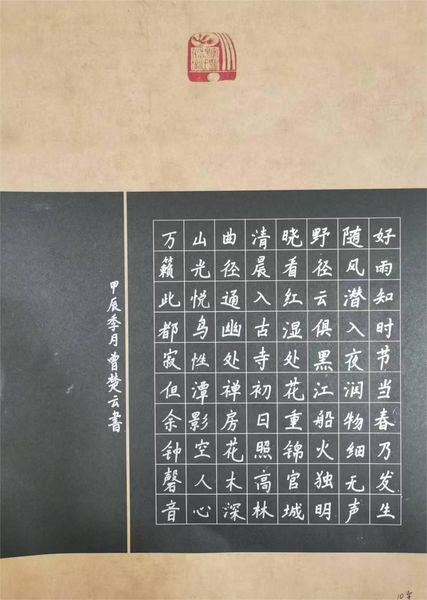 好雨知时节当春乃发生
随风潜入夜润物细无声
野径云俱黑江船火独明
晓看红湿处花重锦官城
清晨入古寺初日照高林
曲径通幽处禅房花木深
山光悦鸟性潭影空人心
万籟此都寂但余钟磬音
甲辰季月曾云書
10岁